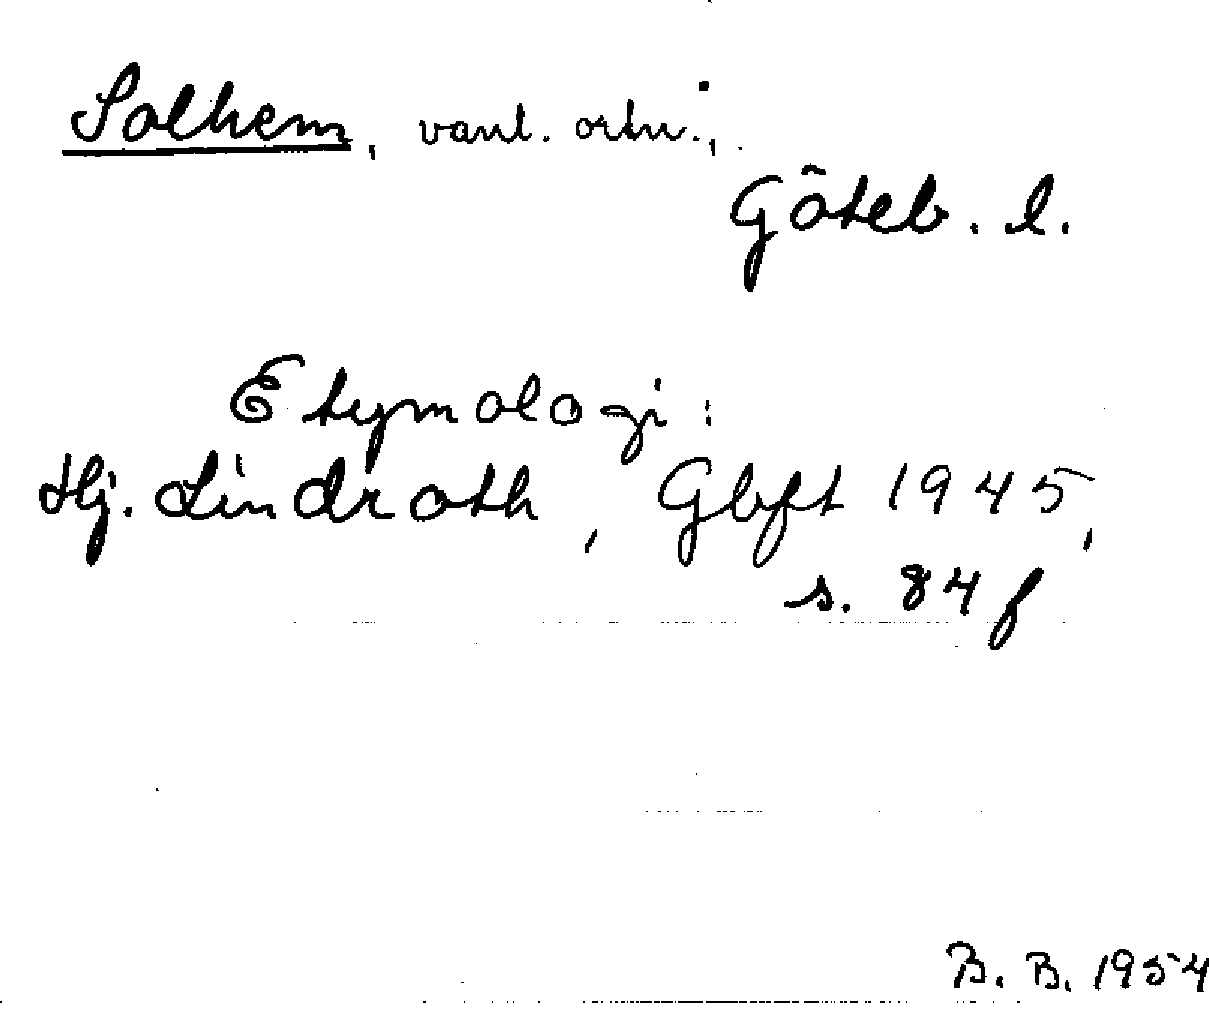 Solhem, vanl. ortn.,
Göteb. l.
Etymologi:
Hj. Lindroth, Gbft 1945,
s. 84 f
B. B. 1954